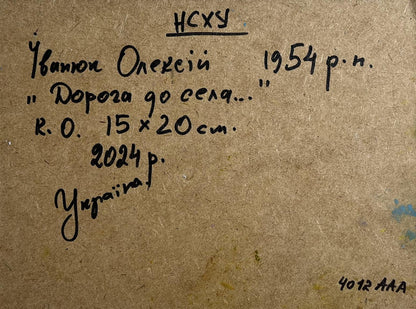 НСХУ
Іванюк Олексій 1954 р.н.
"Дорога до села..."
к.о. 15 x 20 см.
2024 р.
Україна.
4012 ААА